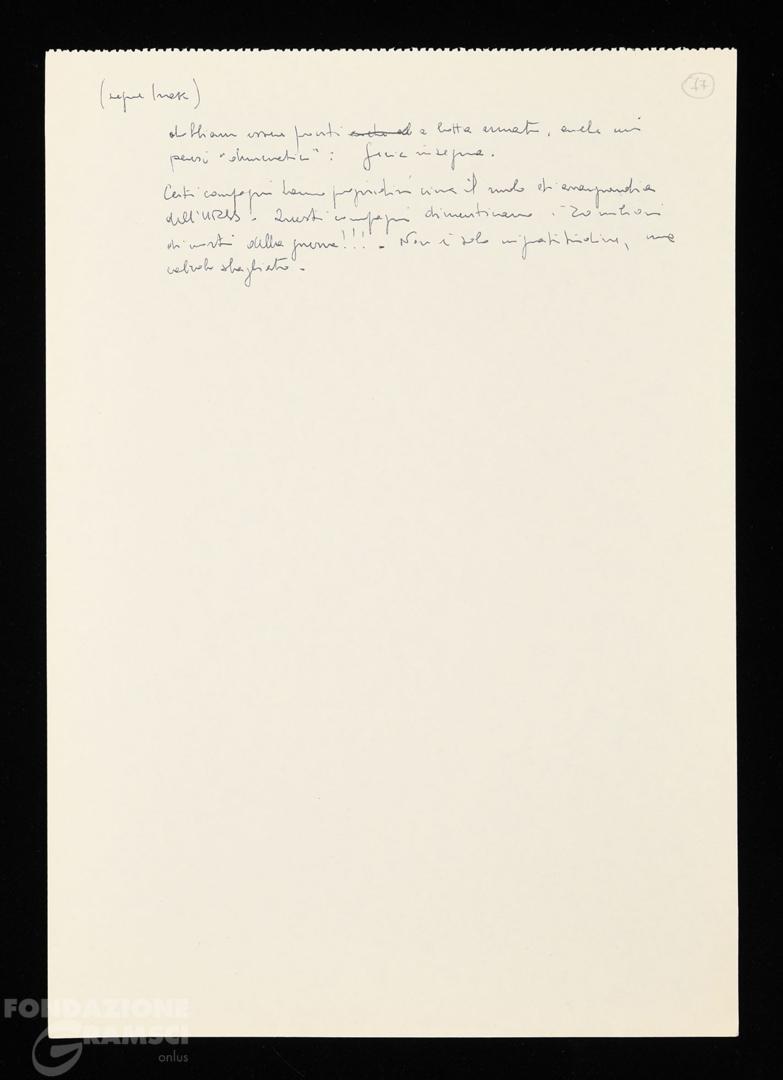 (segue Irak)
17
dobbiamo essere pronti a lotta armata, anche nei
paesi "democratici": Grecia insegna.
Certi compagni hanno pregiudizi circa il ruolo di avanguardia
dell'URSS. Questi compagni dimenticano i 20 milioni
di morti della guerra!!!. Non è solo ingratitudine, ma
calcolo sbagliato.
FONDAZIONE
GRAMSCI
onlus